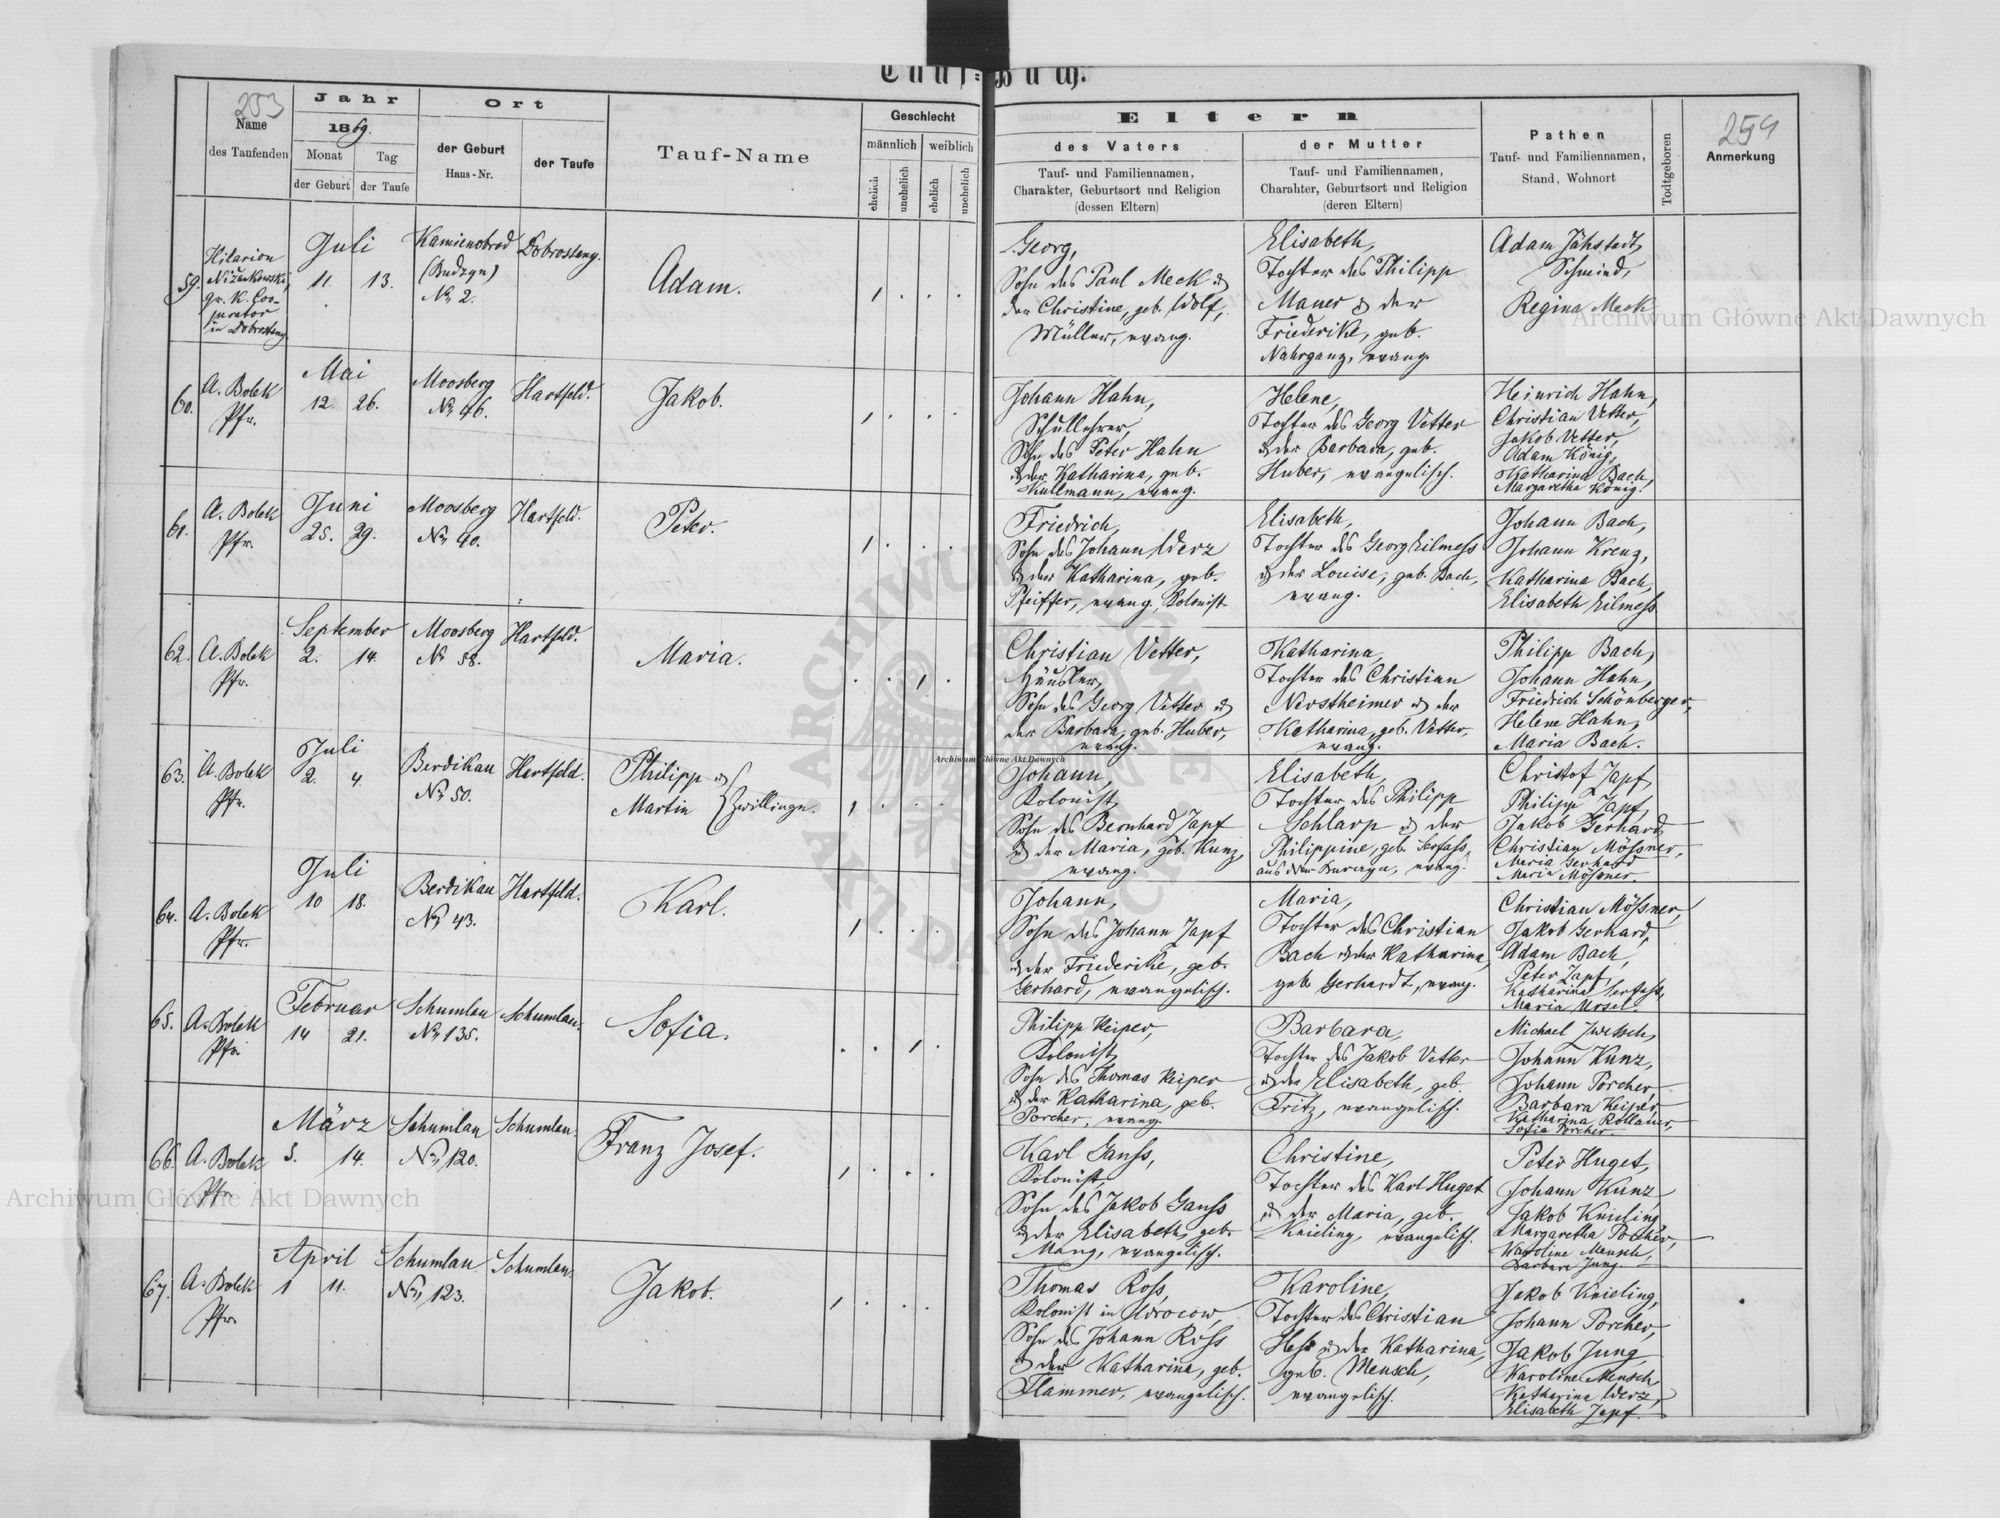 Tauf-Buch.
253
Name
des Taufenden
Jahr
1869.
Monat
Tag
der Geburt
der Taufe
Ort
der Geburt
Haus-Nr.
der Taufe
Tauf-Name
Geschlecht
männlich
weiblich
ehelich
unehelich
ehelich
unehelich
Eltern
des Vaters
Tauf- und Familiennamen,
Charakter, Geburtsort und Religion
(dessen Eltern)
der Mutter
Tauf- und Familiennamen,
Charahter, Geburtsort und Religion
(deren Eltern)
Pathen
Tauf- und Familiennamen,
Stand, Wohnort
Todtgeboren
254
Anmerkung
59.
Hilarion
Nižankowski,
gr. K. Coo-
perator
in Dobrostany
Juli
11.
13.
Kamienobrod
(Budzyn)
No 2.
Dobrostany.
Adam.
1
Georg,
Sohn des Paul Meck u.
der Christine, geb. Wolf,
Müller, evang.
Elisabeth,
Tochter des Philipp
Mauer u. der
Friederike, geb.
Nahrganz, evang.
Adam Jähstadt,
Schmied,
Regina Meck
60.
A. Bolek
Pfr.
Mai
12.
26.
Moosberg
No 46.
Hartfeld.
Jakob.
1
Johann Hahn,
Schullehrer,
Sohn des Peter Hahn
u. der Katharina, geb.
Kullmann, evang.
Helene,
Tochter des Georg Vetter
u. der Barbara, geb.
Huber, evangelisch.
Heinrich Hahn,
Christian Vetter,
Jakob Vetter,
Adam König,
Katharina Bach,
Margaretha König.
61.
A. Bolek
Pfr.
Juni
25.
29.
Moosberg
No 40.
Hartfeld.
Peter.
1
Friedrich,
Sohn des Johann Werz
u. der Katharina, geb.
Pfeiffer, evang., Kolonist
Elisabeth,
Tochter des Georg Eilmess
u. der Louise, geb. Bach,
evang.
Johann Bach,
Johann Kreuz,
Katharina Bach,
Elisabeth Eilmess
62.
A. Bolek
Pfr.
September
2.
14.
Moosberg
No 58.
Hartfeld.
Maria.
1
Christian Vetter,
Häusler,
Sohn des Georg Vetter u.
der Barbara, geb. Huber,
evang.
Katharina,
Tochter des Christian
Nerstheimer u. der
Katharina, geb. Vetter,
evang.
Philipp Bach,
Johann Hahn,
Friedrich Schönberger,
Helene Hahn,
Maria Bach.
63.
A. Bolek
Pfr.
Juli
2.
4.
Berdikau
No 50.
Hartfeld.
Philipp u.
Martin
Zwillinge.
1
Johann,
Kolonist,
Sohn des Bernhard Zapf
u. der Maria, geb. Kunz,
evang.
Elisabeth,
Tochter des Philipp
Schlarp u. der
Philippine, geb. Serfass,
evang.
Christof Zapf,
Philipp Zapf,
Jakob Gerhard,
Christian Mössner,
Maria Gerhard
Maria Mössner
64.
A. Bolek
Pfr.
Juli
10
18.
Berdikau
No 43.
Hartfeld.
Karl.
1
Johann,
Sohn des Johann Zapf
u. der Friederike, geb.
Gerhard, evangelisch.
Maria,
Tochter des Christian
Bach u. der Katharina,
geb. Gerhardt, evang.
Christian Mössner,
Jakob Gerhard,
Adam Bach,
Peter Zapf,
Katharina Serfass,
Maria
65.
A. Bolek
Pfr.
Februar
14
21.
Schumlau
No 135.
Schumlau.
Sofia.
1
Philipp Keiper,
Kolonist,
Sohn des Thomas Keiper
u. der Katharina, geb.
Porcher, evang.
Barbara,
Tochter des Jakob Vetter
u. der Elisabeth, geb.
Fritz, evangelisch.
Michael Zwetsch,
Johann Kunz,
Johann Porcher
Barbara Keiper,
Katharina Kollauer,
Sofia Porcher.
66.
A. Bolek
Pfr.
März
5.
14.
Schumlau
No 120.
Schumlau.
Franz Josef.
1
Karl Ganss,
Kolonist,
Sohn des Jakob Ganss
u. der Elisabeth, geb.
Mang, evangelisch.
Christine,
Tochter des Karl Huget
u. der Maria, geb.
Knieling, evangelisch.
Peter Huget,
Johann Kunz
Jakob Knieling
Margaretha Porcher,
Karoline Mensch,
Barbara Jung
67.
A. Bolek
Pfr.
April
1
11.
Schumlau
No 123.
Schumlau.
Jakob.
1
Thomas Ross,
Kolonist in Wrocow,
Sohn des Johann Ross
u. der Katharina, geb.
Flammer, evangelisch.
Karoline,
Tochter des Christian
Hess u. der Katharina,
geb. Mensch,
evangelisch.
Jakob Knieling,
Johann Porcher,
Jakob Jung
Karoline Mensch,
Katharina Werz,
Elisabeth Zapf.
Archiwum Główne Akt Dawnych
Archiwum Główne Akt Dawnych
Archiwum Główne Akt Dawnych